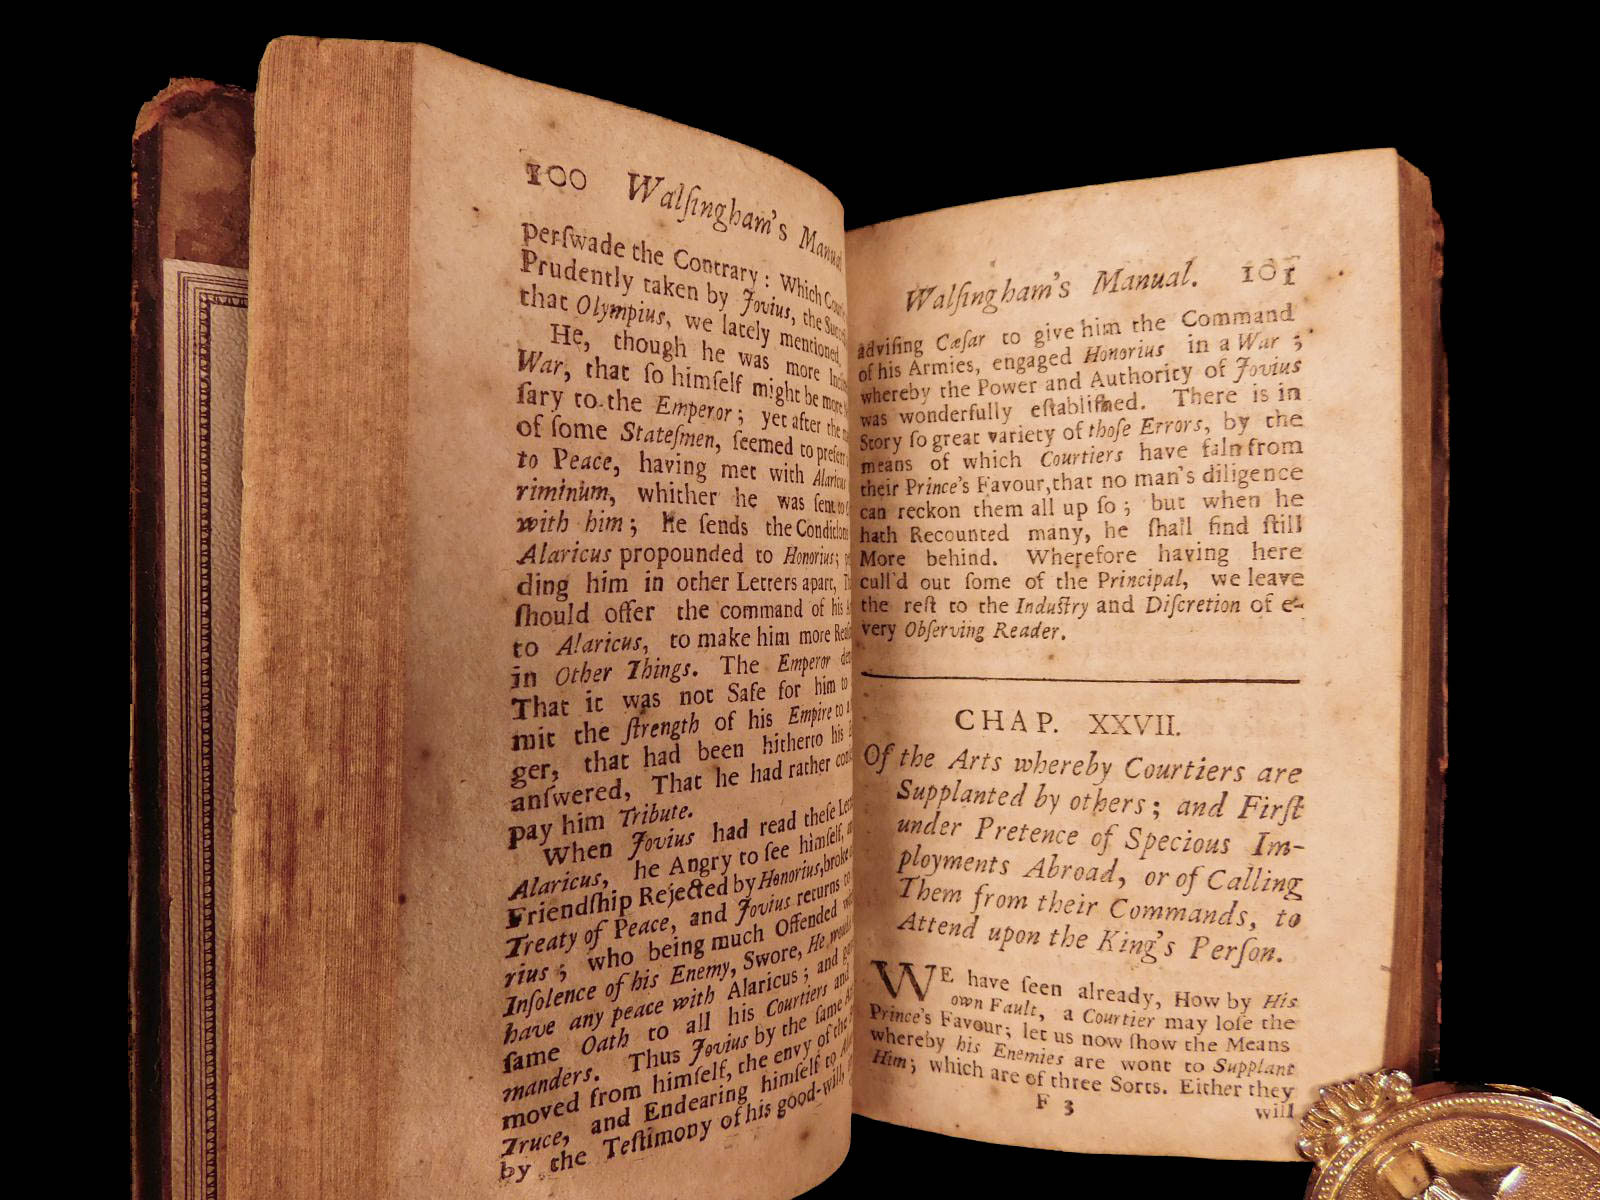 100 Walſingham's Manual
perſwade the Contrary: Which
Prudently taken by Jovius, the
that Olympius, we lately mentioned
He, though he was more
War, that ſo himſelf might be more
ſary to the Emperor; yet after the
of ſome Stateſmen, ſeemed to prefer
to Peace, having met with Alaricus
riminum, whither he was ſent to
with him; he ſends the
Alaricus propounded to Honorius;
ding him in other Letters apart,
ſhould offer the command of his
to Alaricus, to make him more
in Other Things. The Emperor
That it was not Safe for him to
mit the ſtrength of his Empire to
ger, that had been hitherto his
anſwered, That he had rather
pay him Tribute.
When Jovius had read theſe
Alaricus, he Angry to ſee himſelf,
Friendſhip Rejected by Honorius, broke
Treaty of Peace, and Jovius returns to
rius; who being much Offended
Inſolence of his Enemy, Swore, He would
have any peace with Alaricus; and
ſame Oath to all his Courtiers and
manders. Thus Jovius by the ſame
moved from himſelf, the envy of the
Truce, and Endearing himſelf to
by the Teſtimony of his good-will,
Walſingham's Manual. 101
adviſing Cæſar to give him the Command
of his Armies, engaged Honorius in a War;
whereby the Power and Authority of Jovius
was wonderfully eſtabliſhed. There is in
Story ſo great variety of thoſe Errors, by the
means of which Courtiers have faln from
their Prince's Favour, that no man's diligence
can reckon them all up ſo; but when he
hath Recounted many, he ſhall find ſtill
More behind. Wherefore having here
cull'd out ſome of the Principal, we leave
the reſt to the Induſtry and Diſcretion of e-
very Obſerving Reader.
CHAP. XXVII.
Of the Arts whereby Courtiers are
Supplanted by others; and Firſt
under Pretence of Specious Im-
ployments Abroad, or of Calling
Them from their Commands, to
Attend upon the King's Perſon.
WE have ſeen already, How by His
own Fault, a Courtier may loſe the
Prince's Favour; let us now ſhow the Means
whereby his Enemies are wont to Supplant
Him; which are of three Sorts. Either they
F 3 will